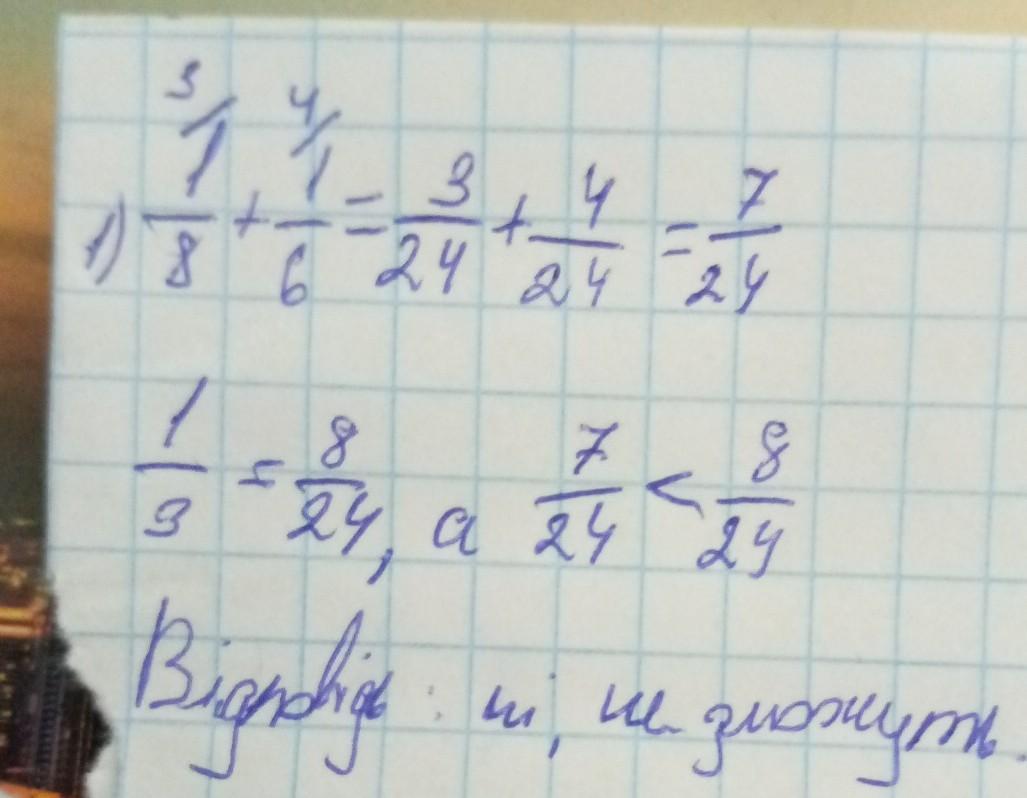 3/ 4/
1) 1/8 + 1/6 = 3/24 + 4/24 = 7/24
1/3 = 8/24, а 7/24 < 8/24
Відповідь: ні, не зможуть.